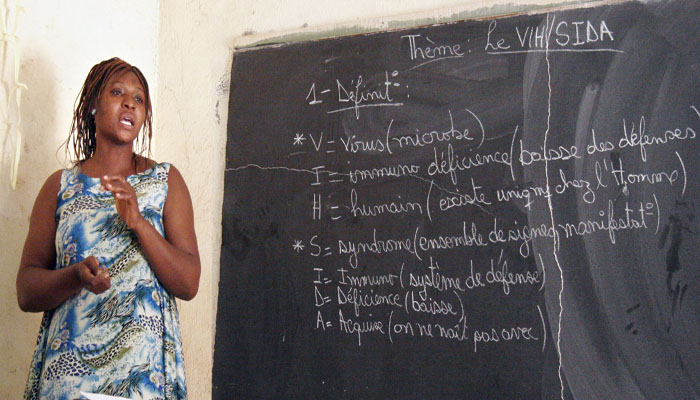 Thème: Le VIH/SIDA
1- Définit°:
* V = virus (microbe)
I = immuno déficience (baisse des défenses)
H = humain (existe uniqmt chez l'Homme)
* S = syndrome (ensemble de signes, manifestat°)
I = Immuno (système de défense)
D = Déficience (baisse)
A = Acquise (on ne naît pas avec)